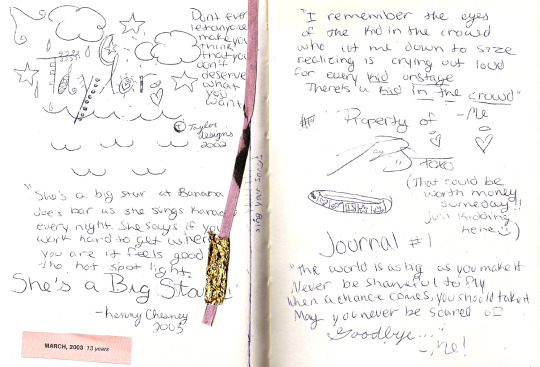 Dont ever
let anyone
make you
think
that you
don't
deserve
what
you
want
© Taylor
designs
2002
"She's a big star at Banana
Joe's bar as she sings Karao
every night. She says if you
work hard to get where
you are it feels good
the hot spot light.
She's a Big Star
- Kenny Chesney
2003
MARCH, 2003 13 years
"I remember the eyes
of the kid in the crowd
who cut me down to size
realizing is crying out loud
for every kid onstage
There's a kid in the crowd"
-Me
Property of
(That could be
worth money
someday!!
just kidding
hehe
Journal #1
"The world is as big as you make it
Never be shameful to fly
When a chance comes, you should take it
May you never be scared
Goodbye..."
-Me!